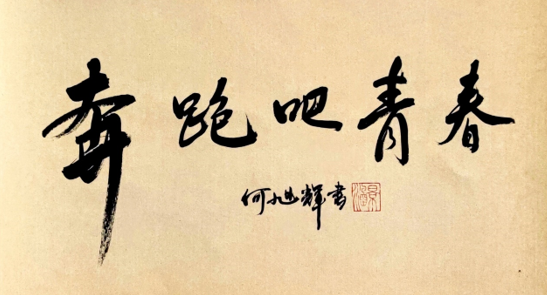 奔跑吧青春
何旭辉书